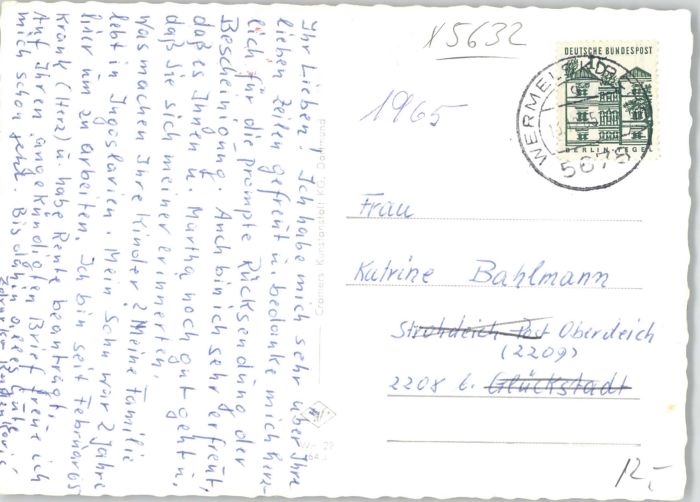 Ihr Lieben! Ich habe mich sehr über Ihre
lieben Zeilen gefreut u. bedanke mich herz-
lich für die prompte Rücksendung der
Bescheinigung. Auch bin ich sehr erfreut,
daß es Ihnen u. Martha noch gut geht u.
daß Sie sich meiner erinnerten.
Was machen Ihre Kinder? Meine Familie
lebt in Jugoslavien. Mein Sohn war 2 Jahre
hier um zu arbeiten. Ich bin seit Februar 65
krank (Herz) u. habe Rente beantragt.
Auf Ihren angekündigten Brief freue ich
mich schon sehr. Bis dahin alles Gute!
Cramers Kunstanstalt KG, Dortmund
X5632
1965
DEUTSCHE BUNDESPOST
BERLIN-TEGEL
WERMELSKIRCHEN
5678
Frau
Katrine Bahlmann
Strohdeich Post Oberdeich
(2209)
2208 b. Glückstadt
12,-